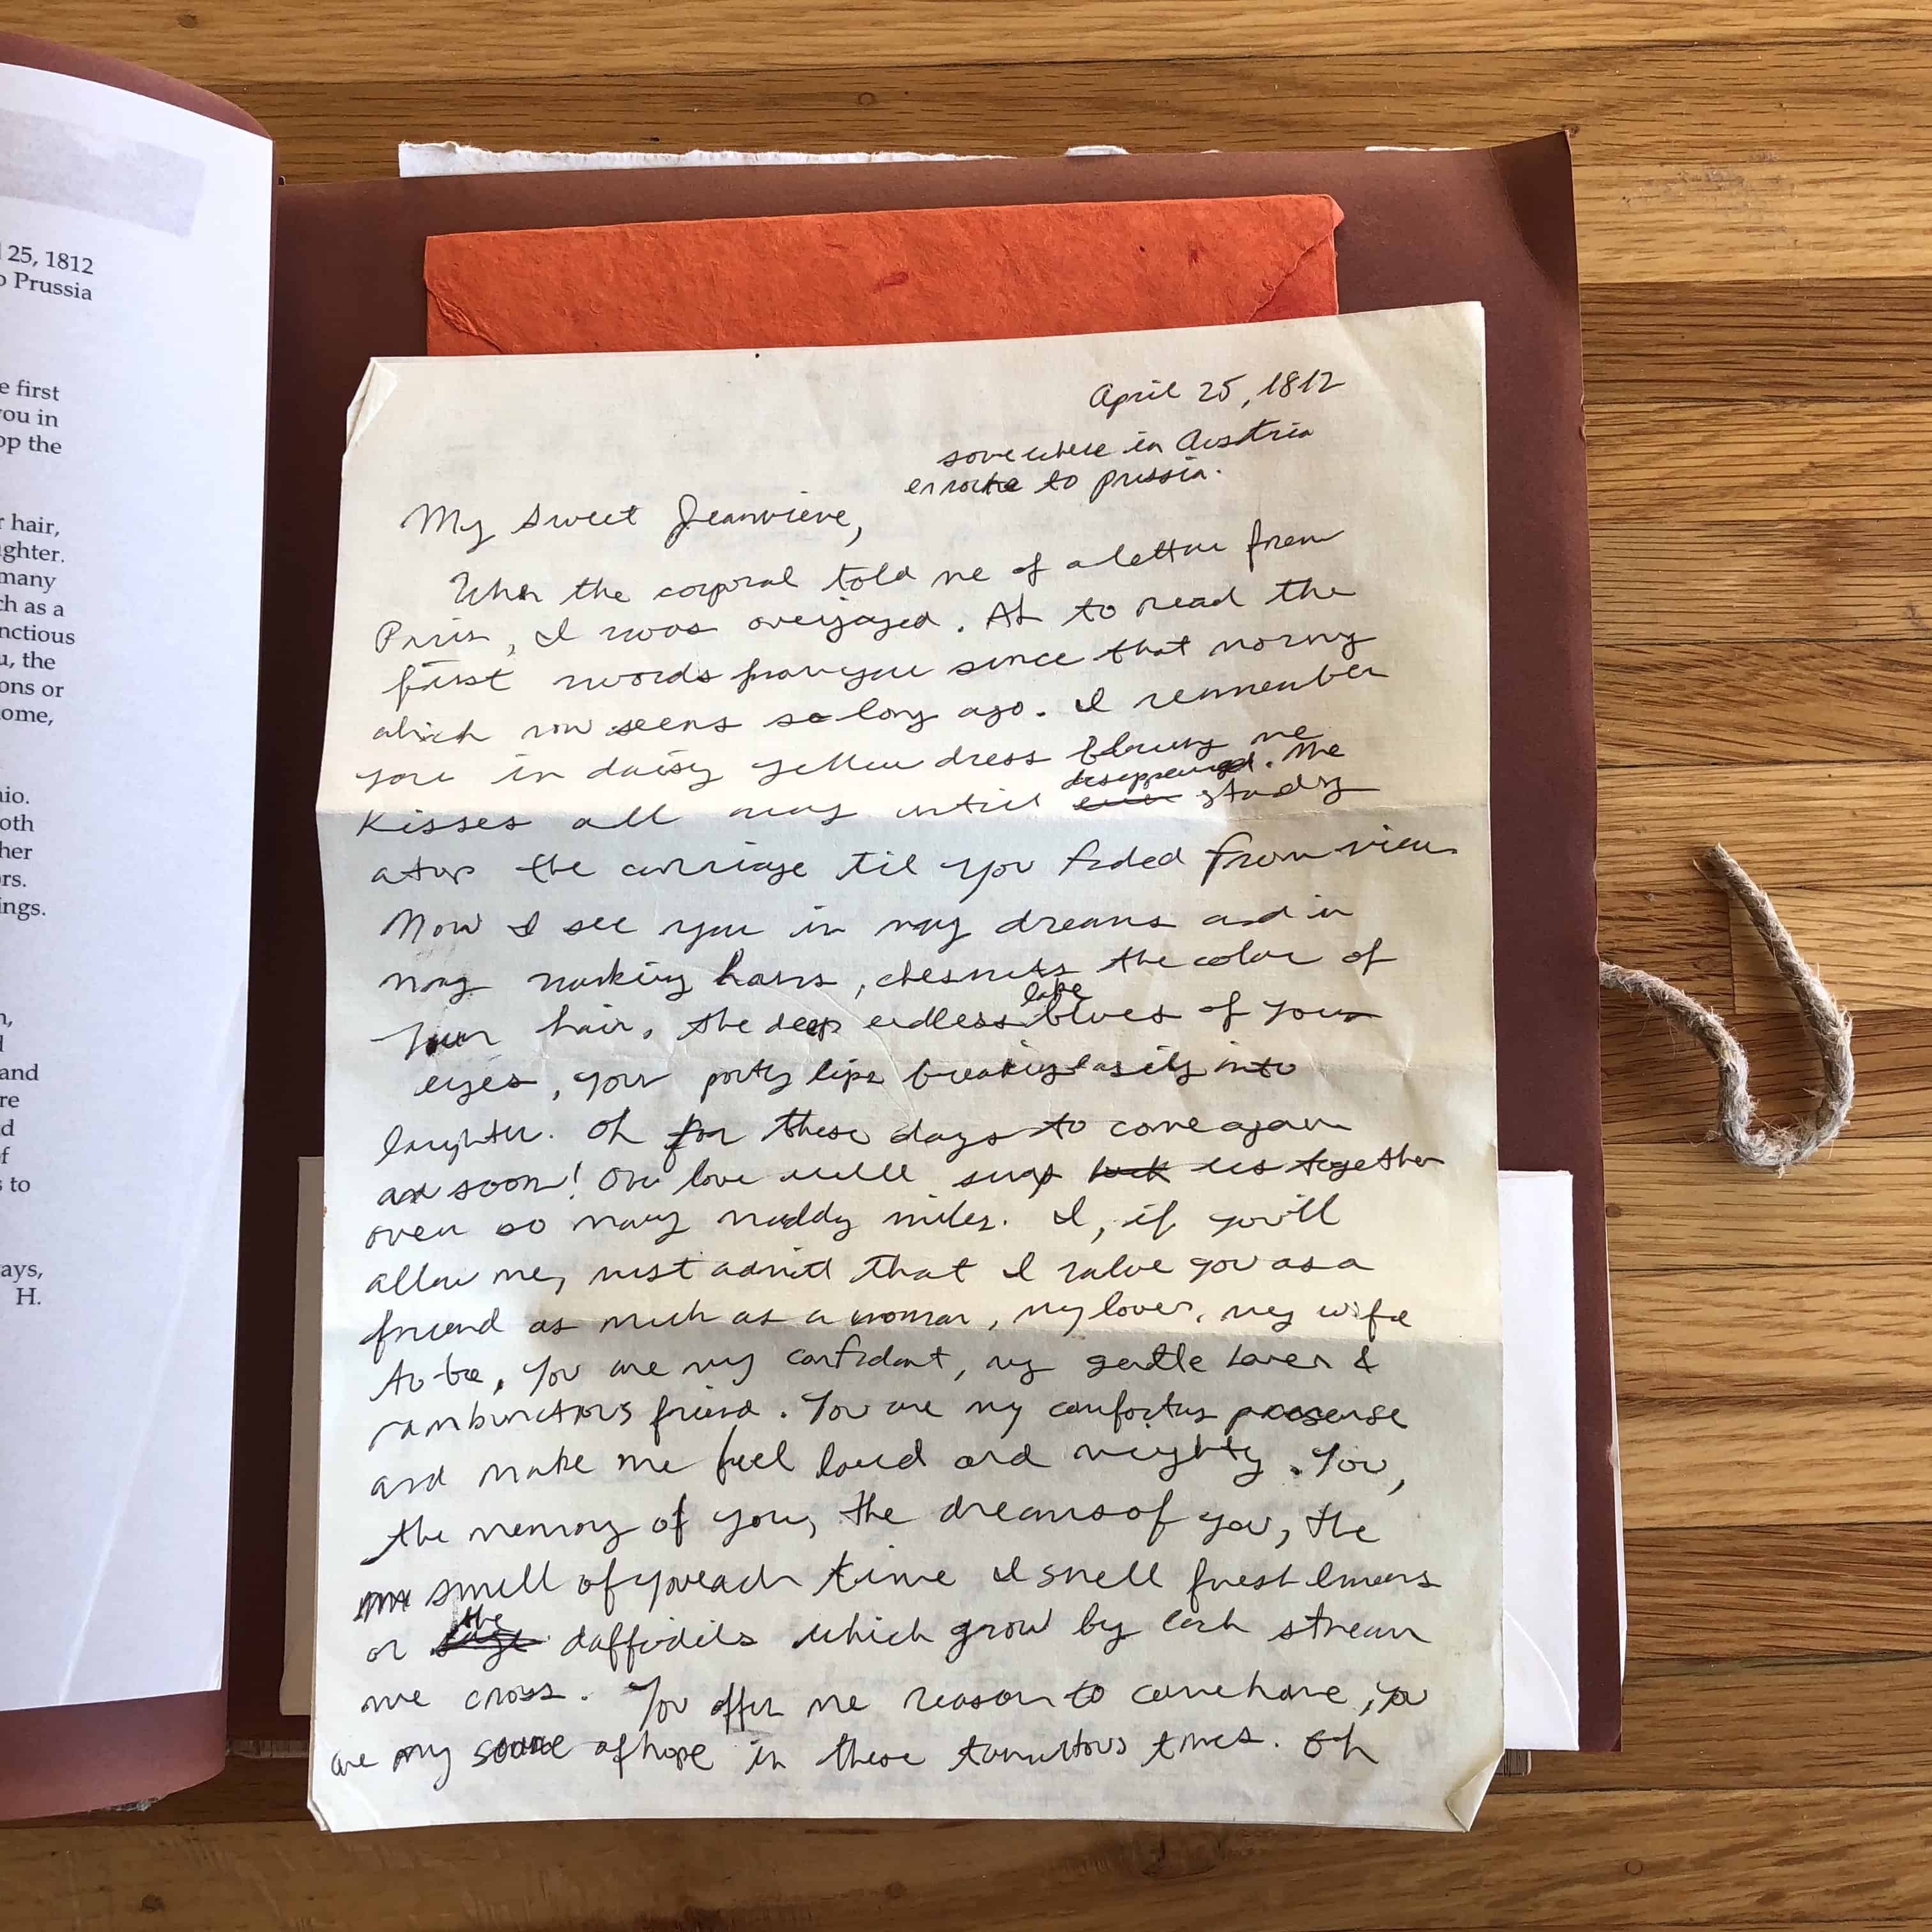 25, 1812
Prussia
first
you in
the
hair,
many
as a
the
or
her
and
to
H.
April 25, 1812
somewhere in Austria
enroute to Prussia.
My Sweet Jeanvieve,
When the corporal told me of a letter from
Paris, I was overjoyed. Ah to read the
first words from you since that morning
which now seems so long ago. I remember
you in daisy yellow dress blowing me
kisses all way until disappeared. Me
atop the carriage til you faded from view
Now I see you in my dreams and in
my waking hours, chesnuts the color of
your hair, the deep endless lake blues of your
eyes, your pouty lips breaking easily into
laughter. Oh for these days to come again
soon! Our love will us together
over so many muddy miles. I, if you'll
allow me, must admit that I value you as a
friend as much as a woman, my lover, my wife
to-be. You are my confidant, my gentle lover &
rambunctious friend. You are my comforting presense
and make me feel loved and mighty. You,
the memory of you, the dreams of you, the
smell of you each time I smell forest
or the daffodils which grow by each stream
we cross. You offer me reason to come home, you
are my source of hope in these tumultous times. Oh